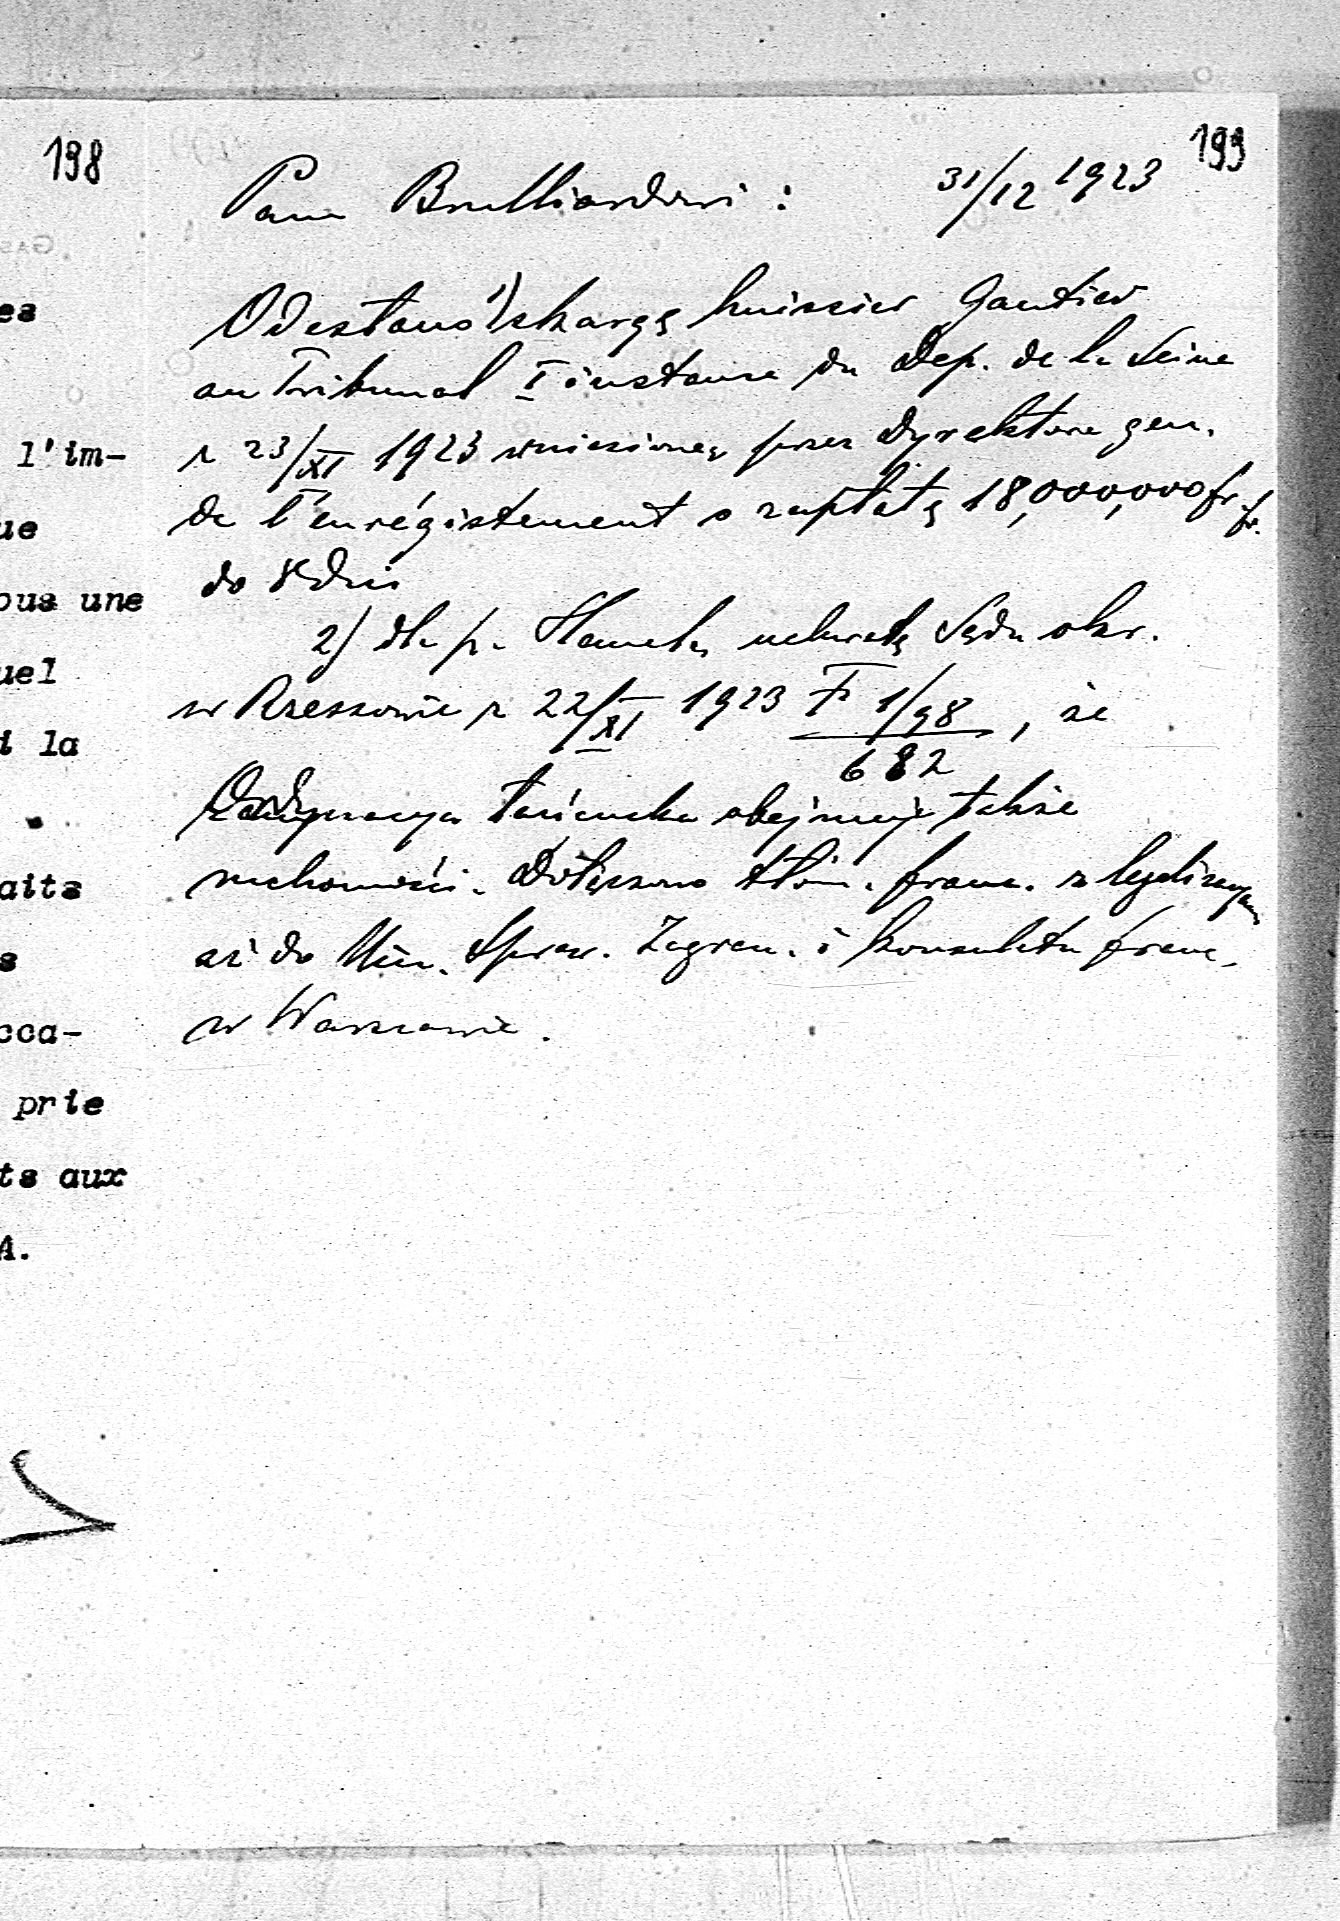 198
199
es
l'im-
ue
ous une
uel
i la
aits
s
cca-
prie
ts aux
A.
Panu Brulliardowi : 31/12 1923
Odesłano 1) skargę huissier Gautier
au Tribunal I instance du Dep. de la Seine
z 23/XI 1923 wniesioną przez Dyrektora gen.
de l'enrégistement o zapłatę 18,000,000 fr. fr.
do 8 dni
2) dla p. uchwałę Sądu okr.
w Rzeszowie z 22/XI 1923 F 1/98 / 682 , że
Ordynacya łańcucka obejmuje także
ruchomości. Dołączono tłóm. franc. z legalizacyami
aż do Min. Spraw. Zagran. i konsulatu franc.
w Warszawie.